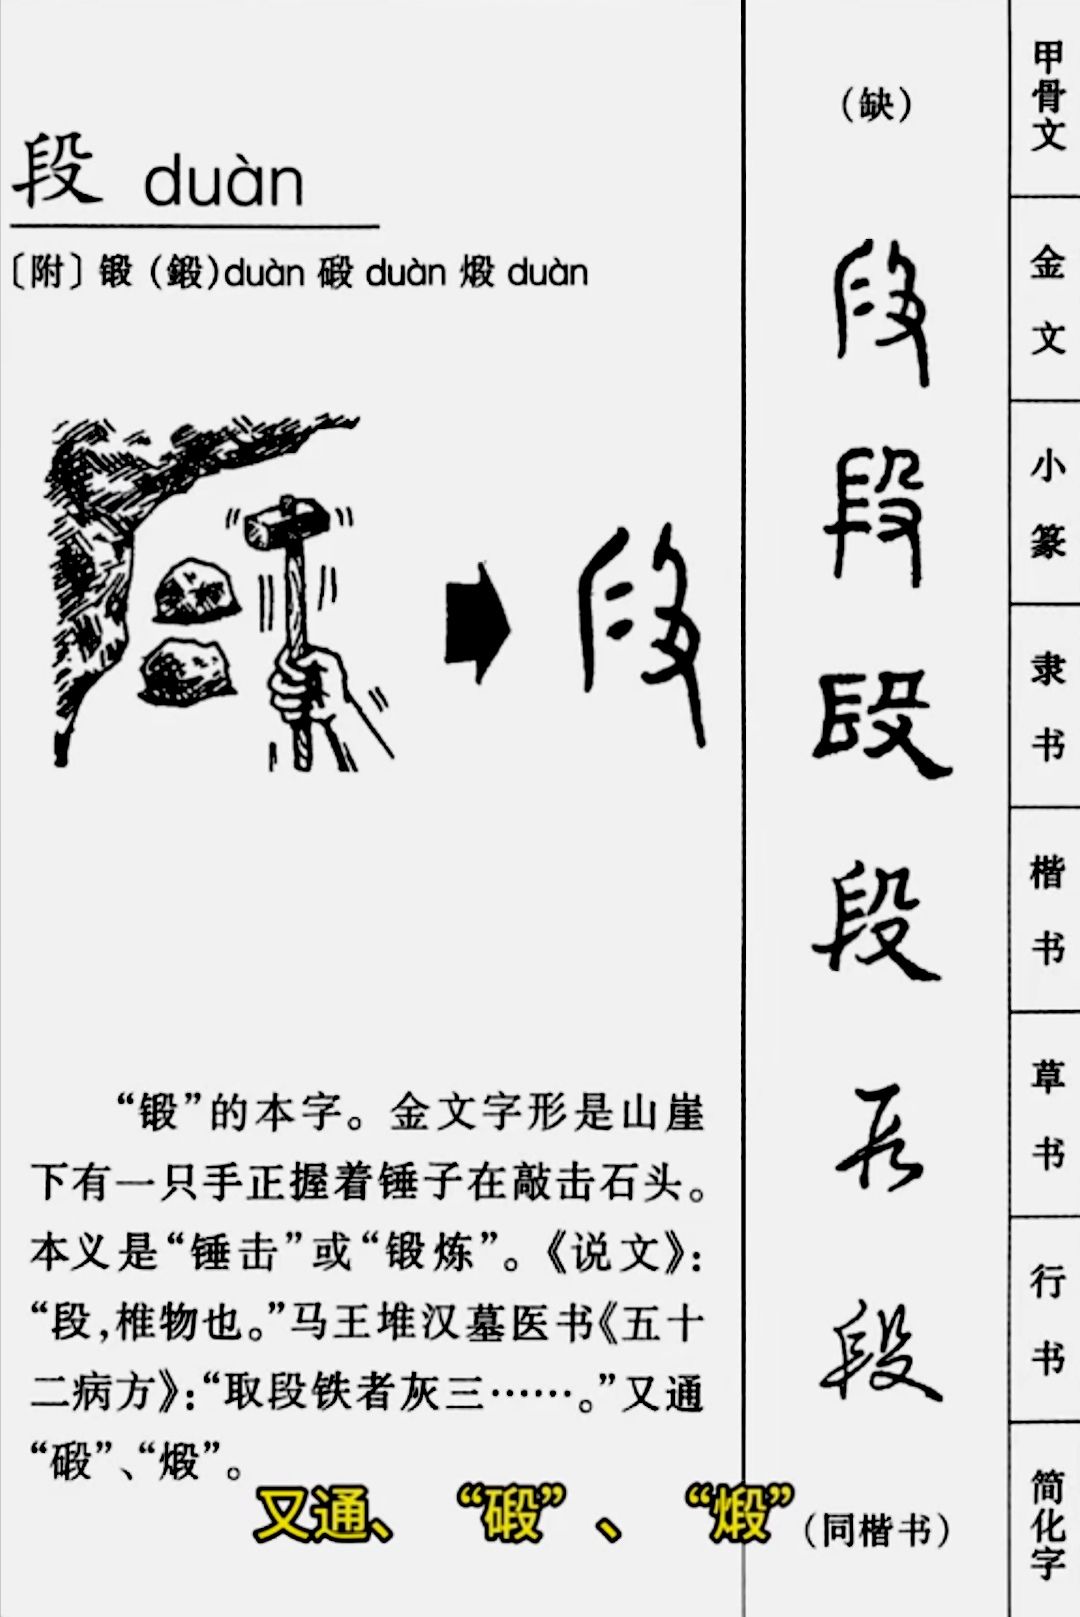 段 duàn
〔附〕锻（鍛）duàn 碫 duàn 煅 duàn
“锻”的本字。金文字形是山崖
下有一只手正握着锤子在敲击石头。
本义是“锤击”或“锻炼”。《说文》：
“段，椎物也。”马王堆汉墓医书《五十
二病方》：“取段铁者灰三……。”又通
“碫”、“煅”。
又通、“碫”、“煅”
（缺）
段
段
段
段
段
段
段
（同楷书）
甲骨文
金文
小篆
隶书
楷书
草书
行书
简化字